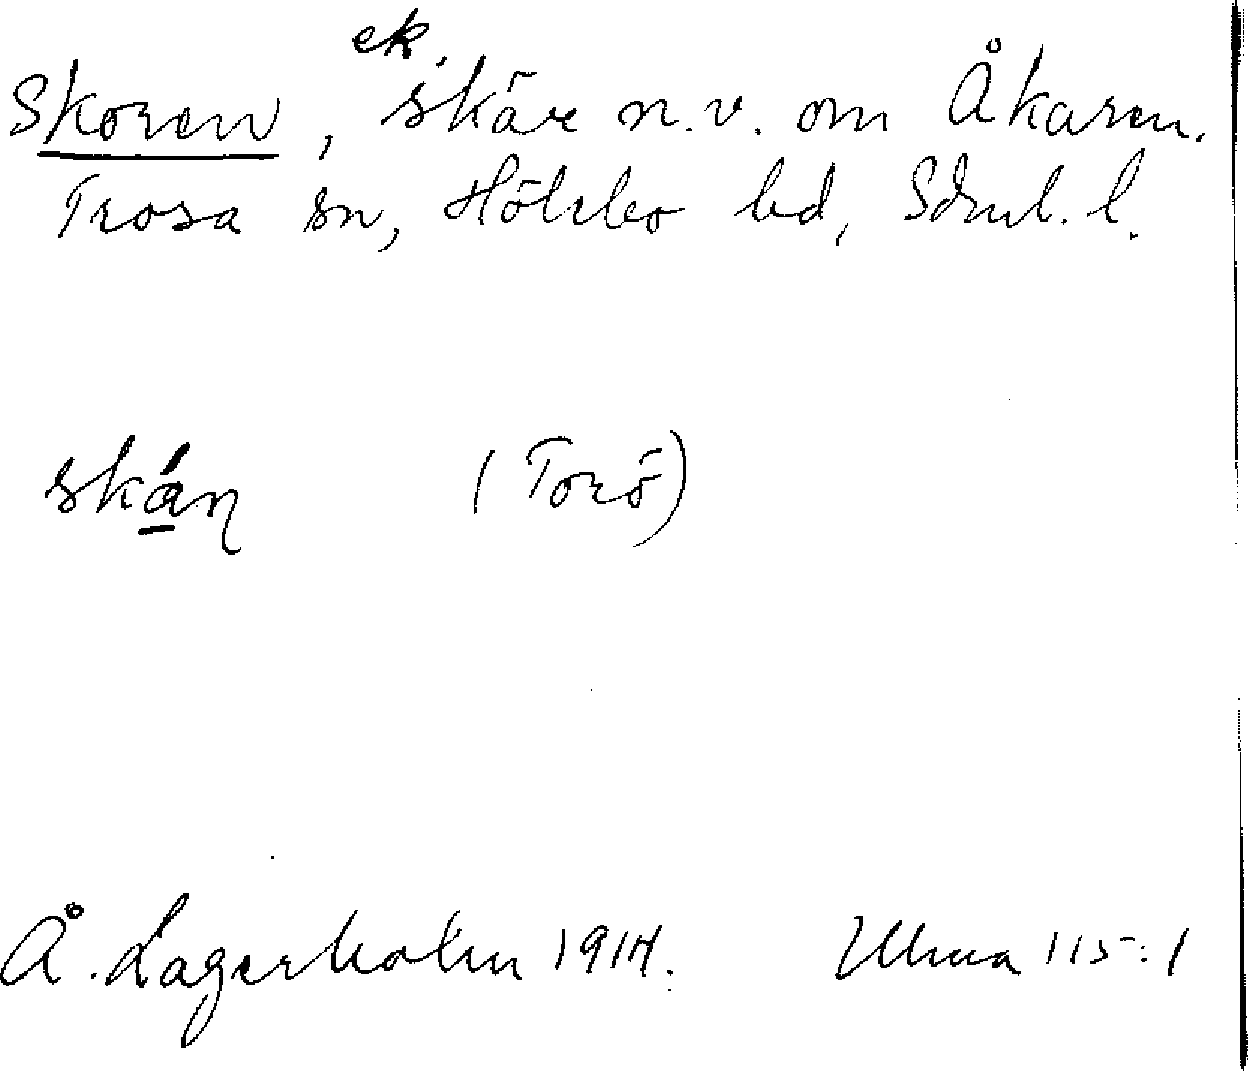 Skoren, ek. skär n.v. om Åkaren.
Trosa sn, Hölebo hd, Sdml. l.
skán (Torö)
Å. Lagerholm 1914. Ulma 115:1